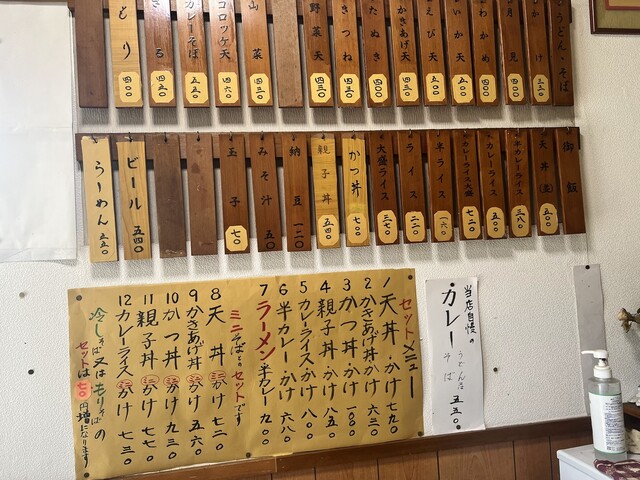 うどん・そば
かけ 三三〇
月見 四〇〇
わかめ 四〇〇
いか天 五〇〇
えび天 五〇〇
かきあげ天 四三〇
たぬき 四〇〇
きつね 四三〇
野菜天 四三〇
山菜 四三〇
コロッケ天 四六〇
カレーそば 五五〇
ざる 四五〇
もり 四〇〇
御飯
天丼(並) 五〇〇
半カレーライス 三八〇
カレーライス 五〇〇
カレーライス大盛 七二〇
半ライス 一六〇
ライス 二二〇
大盛ライス 三七〇
かつ丼 七〇〇
親子丼 五四〇
納豆 一二〇
みそ汁 五〇
玉子 七〇
ビール 五四〇
らーめん 五五〇
セットメニュー
1 天丼・かけ 七九〇
2 かきあげ丼・かけ 六三〇
3 かつ丼・かけ 一〇〇〇
4 親子丼・かけ 八五〇
5 カレーライス・かけ 八〇〇
6 半カレー・かけ 六八〇
7 ラーメン・半カレー 九〇〇
ミニそばとのセットです
8 天丼ミニかけ 七二〇
9 かきあげ丼ミニかけ 五六〇
10 かつ丼ミニかけ 九三〇
11 親子丼ミニかけ 七七〇
12 カレーライスミニかけ 七三〇
冷しそば又はもりそばの
セットは七〇円増になります
当店自慢の
・カレー うどん そば 五五〇